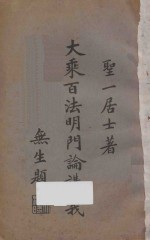 聖一居士著
大乘百法明門論講義
無生題